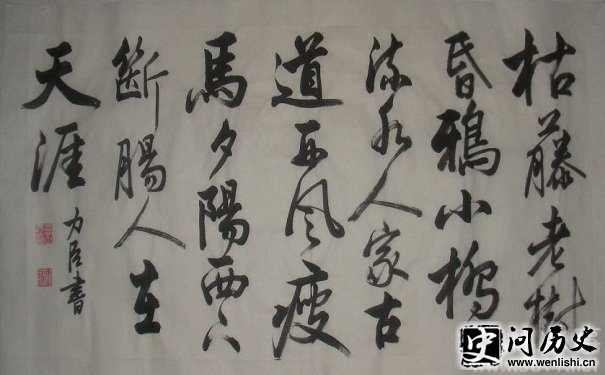 枯藤老樹
昏鴉小橋
流水人家古
道西風瘦
馬夕陽西下
斷腸人在
天涯
力臣書
史问历史
www.wenlishi.cn